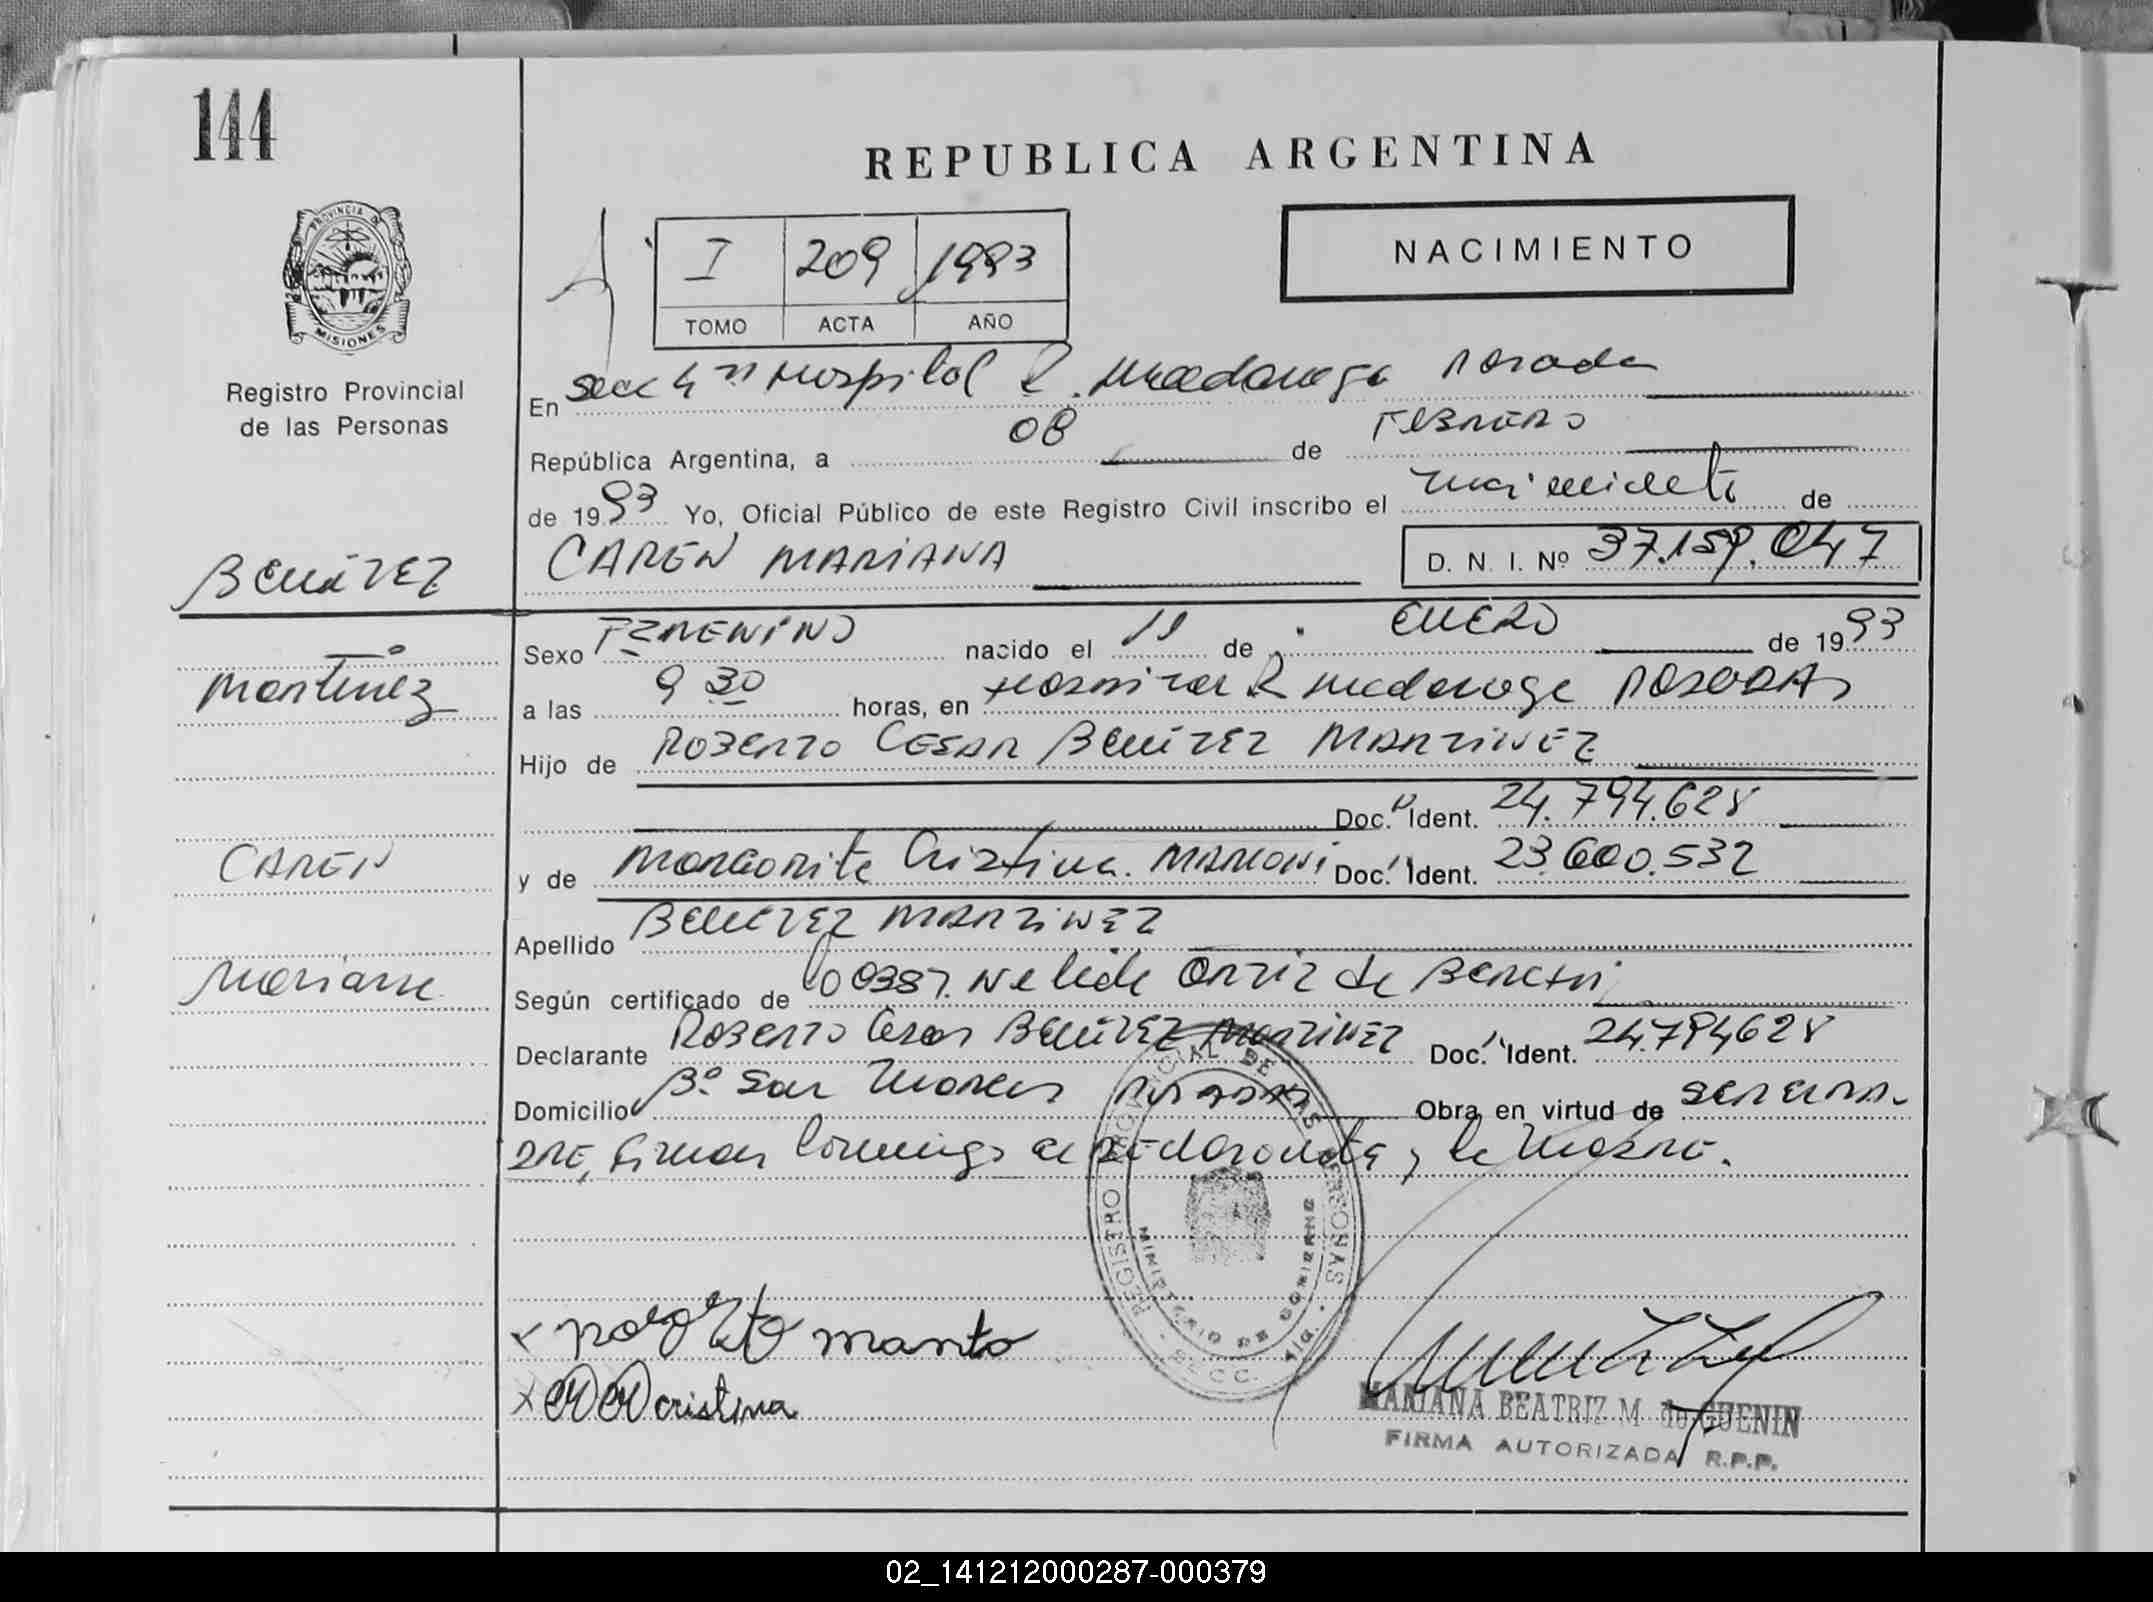 144
REPUBLICA ARGENTINA
NACIMIENTO
I 209 1993
TOMO ACTA AÑO
PROVINCIA DE
MISIONES
Registro Provincial
de las Personas
En Secc 4ta Hospital R. Madariaga Posadas
República Argentina, a 08 de FEBRERO
de 1993 Yo, Oficial Público de este Registro Civil inscribo el nacimiento de
CAREN MARIANA D. N. I. Nº 37.159.047
BENÍTEZ
Martínez
CAREN
Mariana
Sexo FEMENINO nacido el 11 de ENERO de 1993
a las 9 30 horas, en Hospital R Madariaga POSADAS
Hijo de ROBERTO CESAR BENÍTEZ MARTINEZ
Doc. Ident. 24.794.628
y de Margarita Cristina Doc. Ident. 23.600.532
Apellido BENITEZ MARTINEZ
Según certificado de Nelida ORTIZ de
Declarante ROBERTO Cesar BENÍTEZ MARTINEZ Doc. Ident. 24.794628
Domicilio Bº San Marcos POSADAS Obra en virtud de
Firman Conmigo el Declarante y la Madre.
REGISTRO PROVINCIAL DE LAS PERSONAS
MINISTERIO DE GOBIERNO
cristina
MARIANA BEATRIZ M. de GUENIN
FIRMA AUTORIZADA R.P.P.
02_141212000287-000379